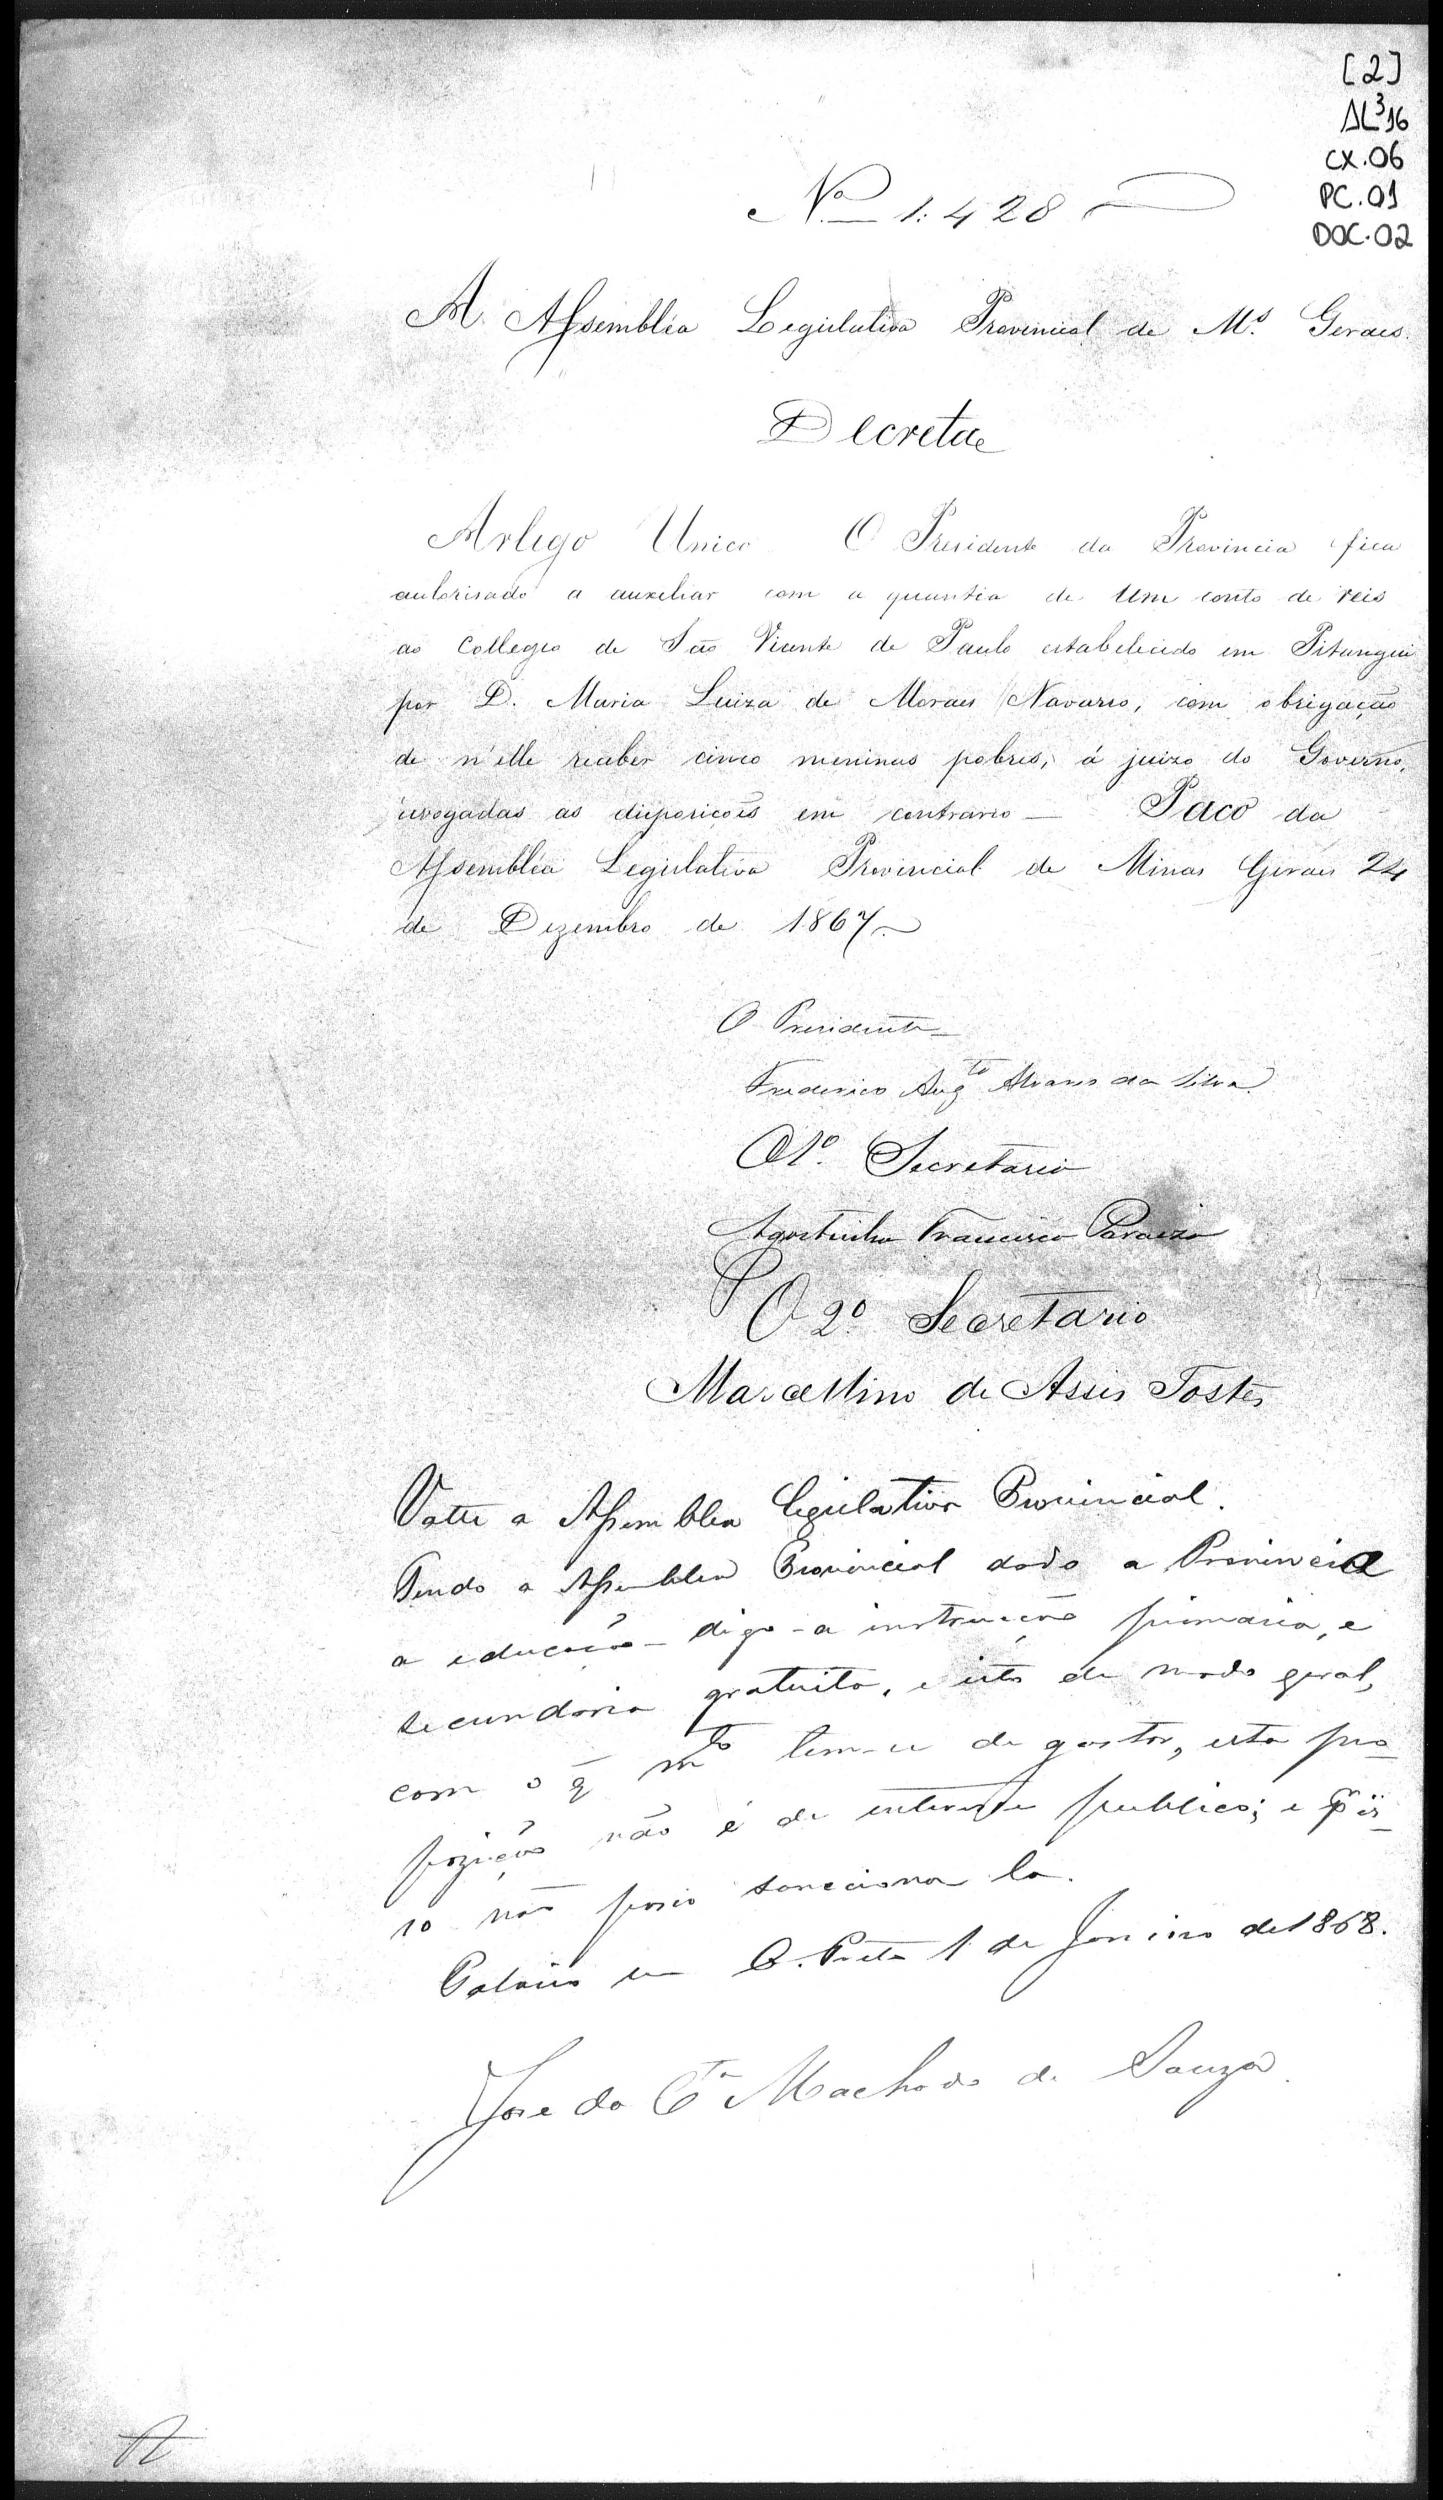 [2]
AL³16
CX.06
PC.01
DOC.02
Nº 1:428
A Assembléa Legislativa Provincial de Mˢ Geraes.
Decreta
Artigo Unico O Presidente da Provincia fica
autorisado a auxiliar com a quantia de Um conto de reis
ao Collegio de São Vicente de Paulo estabelecido em Pitangui
por D. Maria Luiza de Moraes Navarro, com obrigação
de n'elle receber cinco meninas pobres, á juizo do Governo,
revogadas as disposições em contrario — Paço da
Assembléa Legislativa Provincial de Minas Geraes 24
de Dezembro de 1867.
O Presidente
Frederico Augᵗᵒ Alvares da Silva
O 1º. Secretario
Agostinho Francisco Paraizo
O 2º Secretario
Marcellino de Assis Tostes
Volte a Assemblea Legislativa Provincial.
Tendo a Assemblea Provincial dado a Provincia
a educação - digo - a instrucção primaria, e
secundaria gratuita, e isto de modo geral,
com o q̃ mᵗᵒ tem-se de gastar, esta pro-
pozição não é de interesse publico; e pʳ is-
so não posso sancciona la.
Palacio em O. Preto 1 de Janeiro de 1868.
José da Cᵗᵃ Machado de Souza